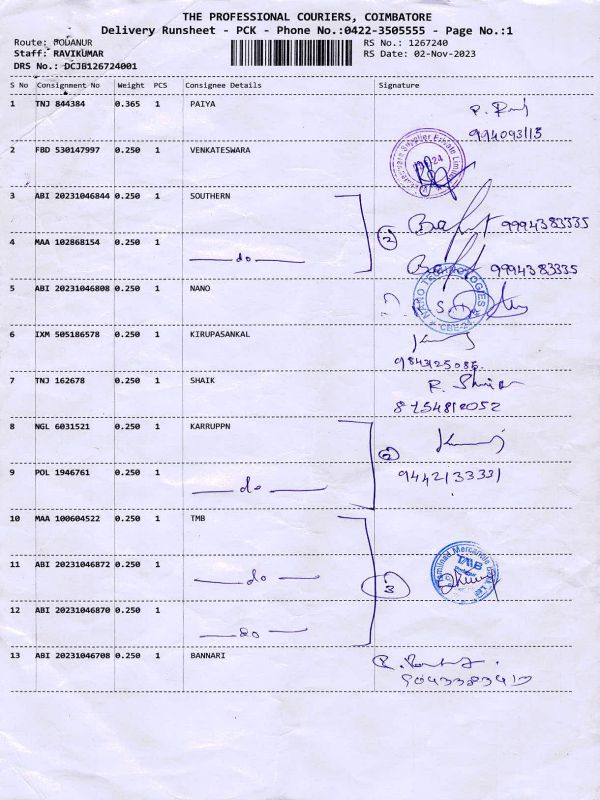 THE PROFESSIONAL COURIERS, COIMBATORE
Delivery Runsheet - PCK - Phone No.:0422-3505555 - Page No.:1
Route: PODANUR
RS No.: 1267240
Staff: RAVIKUMAR
RS Date: 02-Nov-2023
DRS No.: DCJB126724001
S No Consignment No Weight PCS Consignee Details Signature
1 TNJ 844384 0.365 1 PAIYA
994093113
2 FBD 530147997 0.250 1 VENKATESWARA
3 ABI 20231046844 0.250 1 SOUTHERN
9994383335
4 MAA 102868154 0.250 1
do
2
9994383335
5 ABI 20231046808 0.250 1 NANO
NANO TECHNOLOGIES
CBE-24
6 IXM 505186578 0.250 1 KIRUPASANKAL
9843125085
7 TNJ 162678 0.250 1 SHAIK
8754812052
8 NGL 6031521 0.250 1 KARRUPPN
2
9 POL 1946761 0.250 1
do
9442133331
10 MAA 100604522 0.250 1 TMB
11 ABI 20231046872 0.250 1
do
3
Tamilnad Mercantile Bank Ltd
TMB
12 ABI 20231046870 0.250 1
do
13 ABI 20231046708 0.250 1 BANNARI